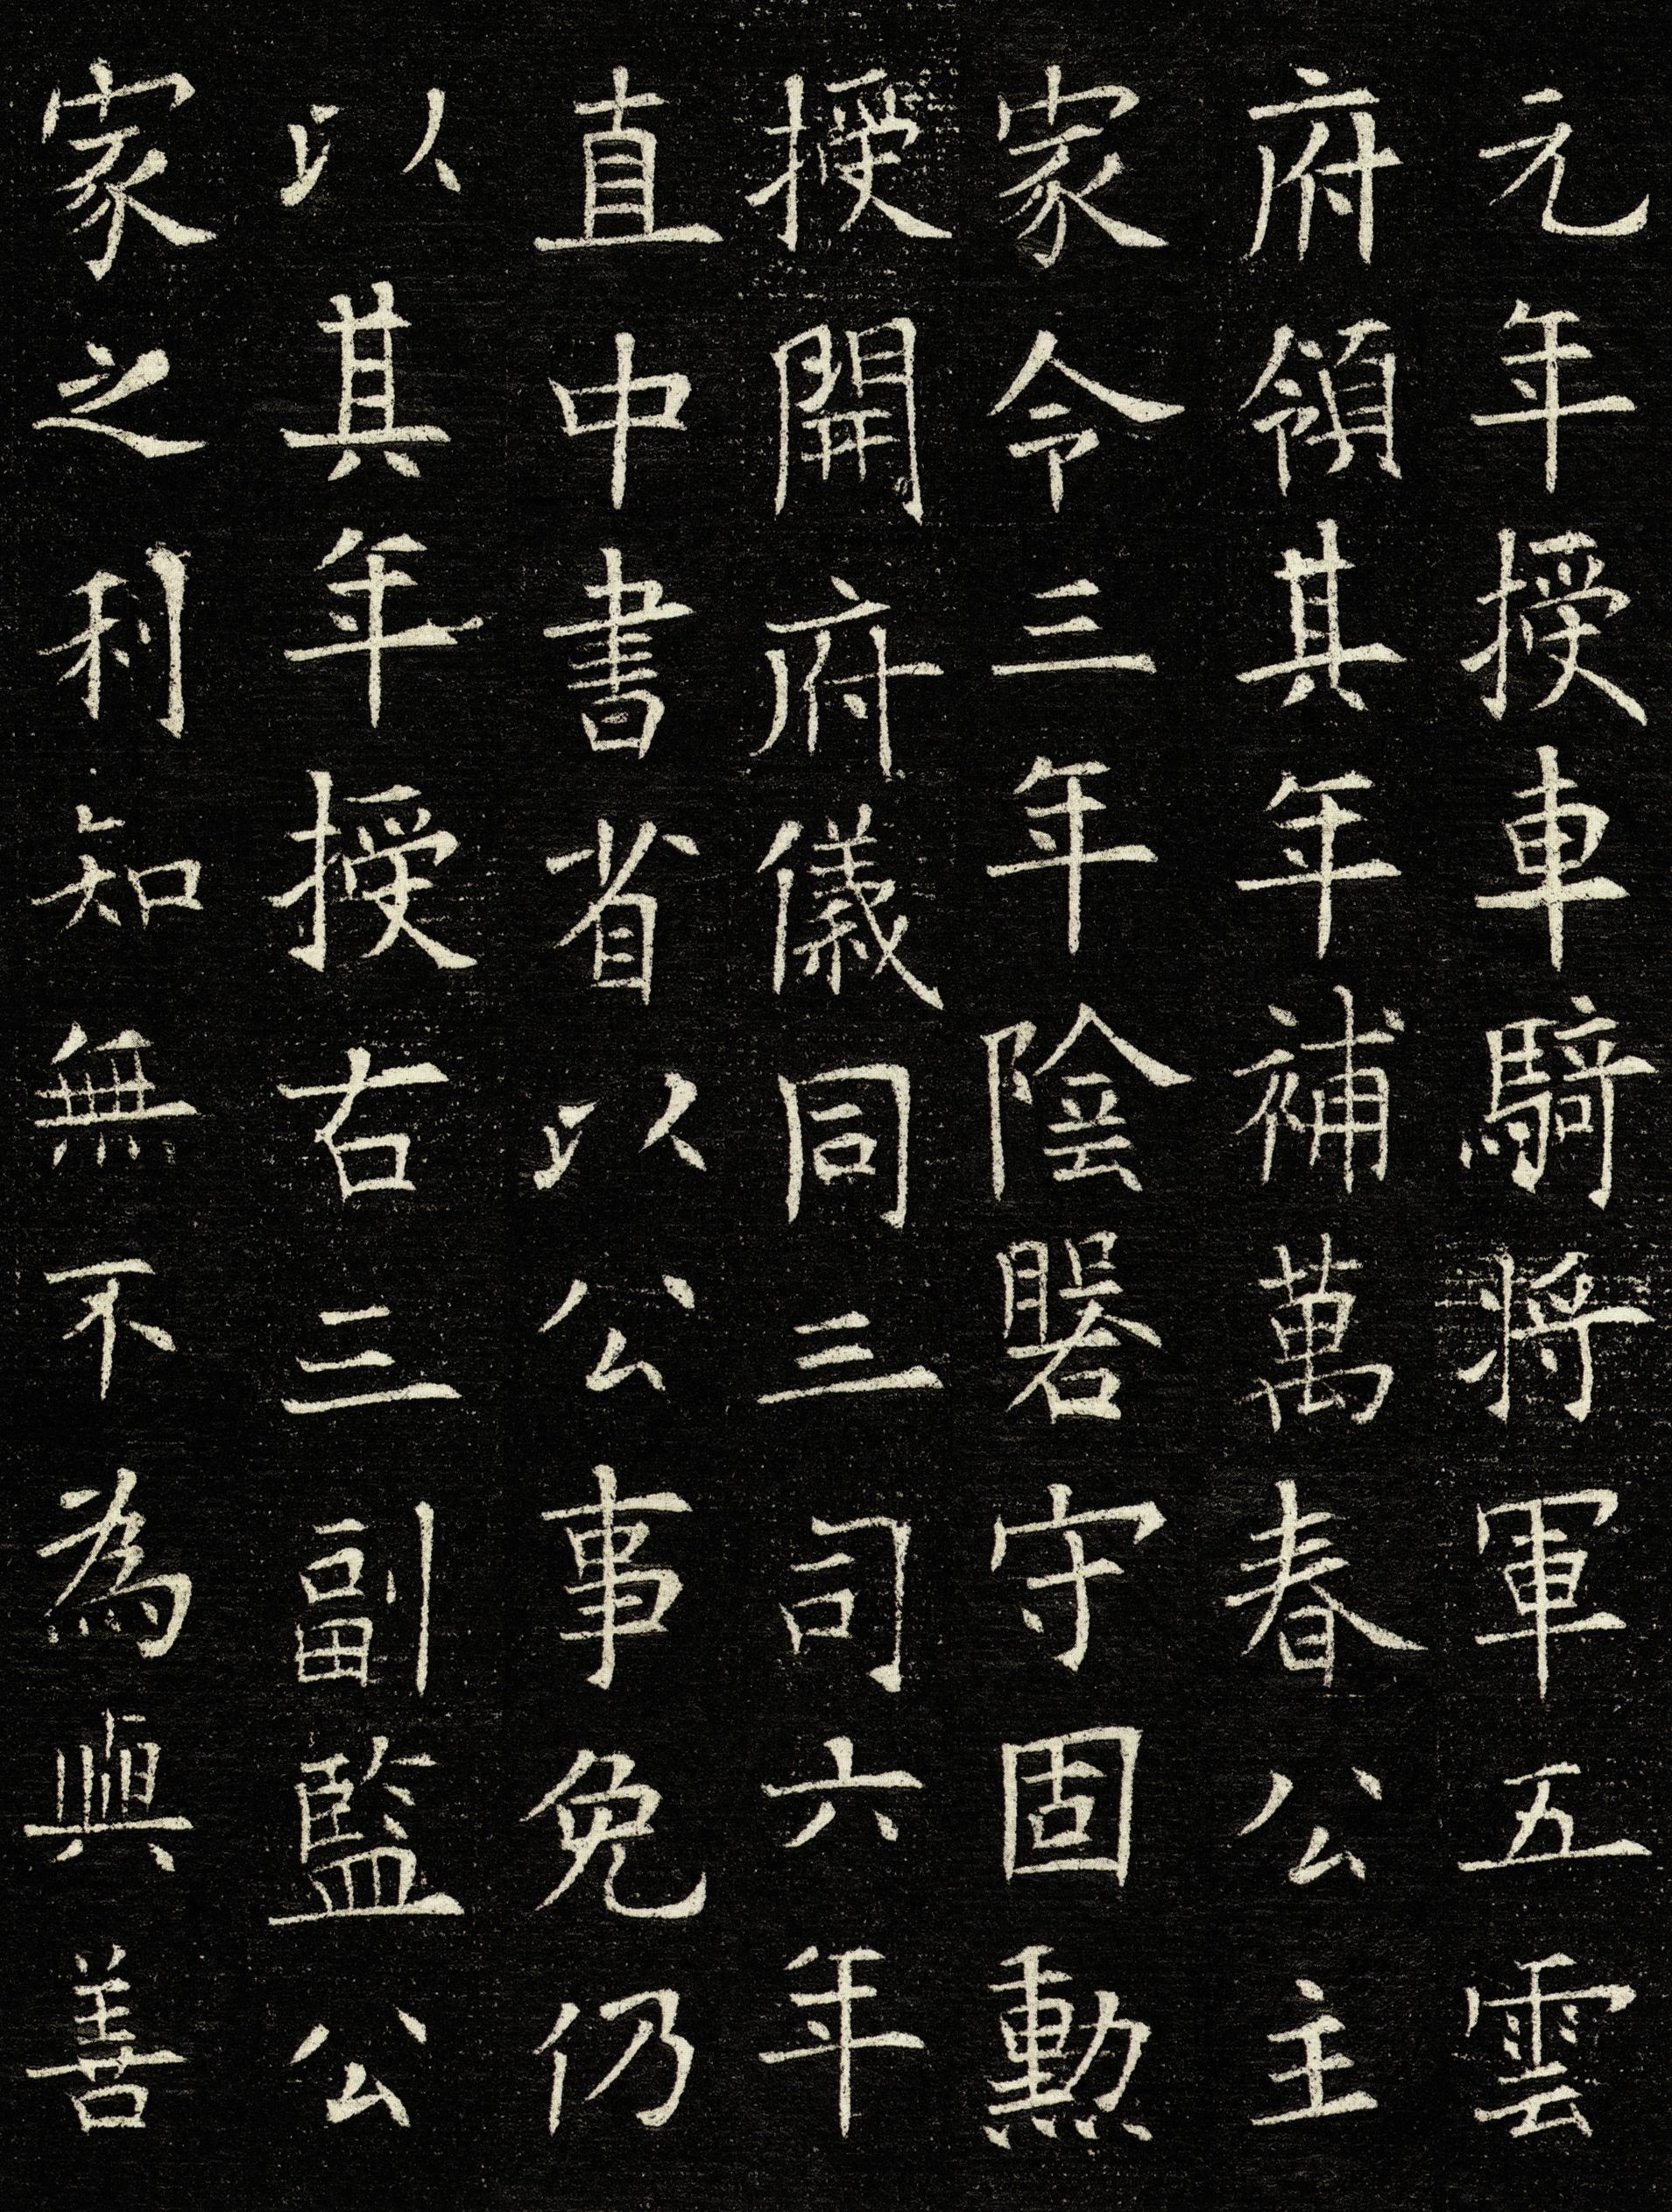 元年授車騎将軍五雲
府領其年補萬春公主
家令三年陰守固勲
授開府儀同三司六年
直中書省以公事免仍
以其年授右三副監公
家之利知無不為與善